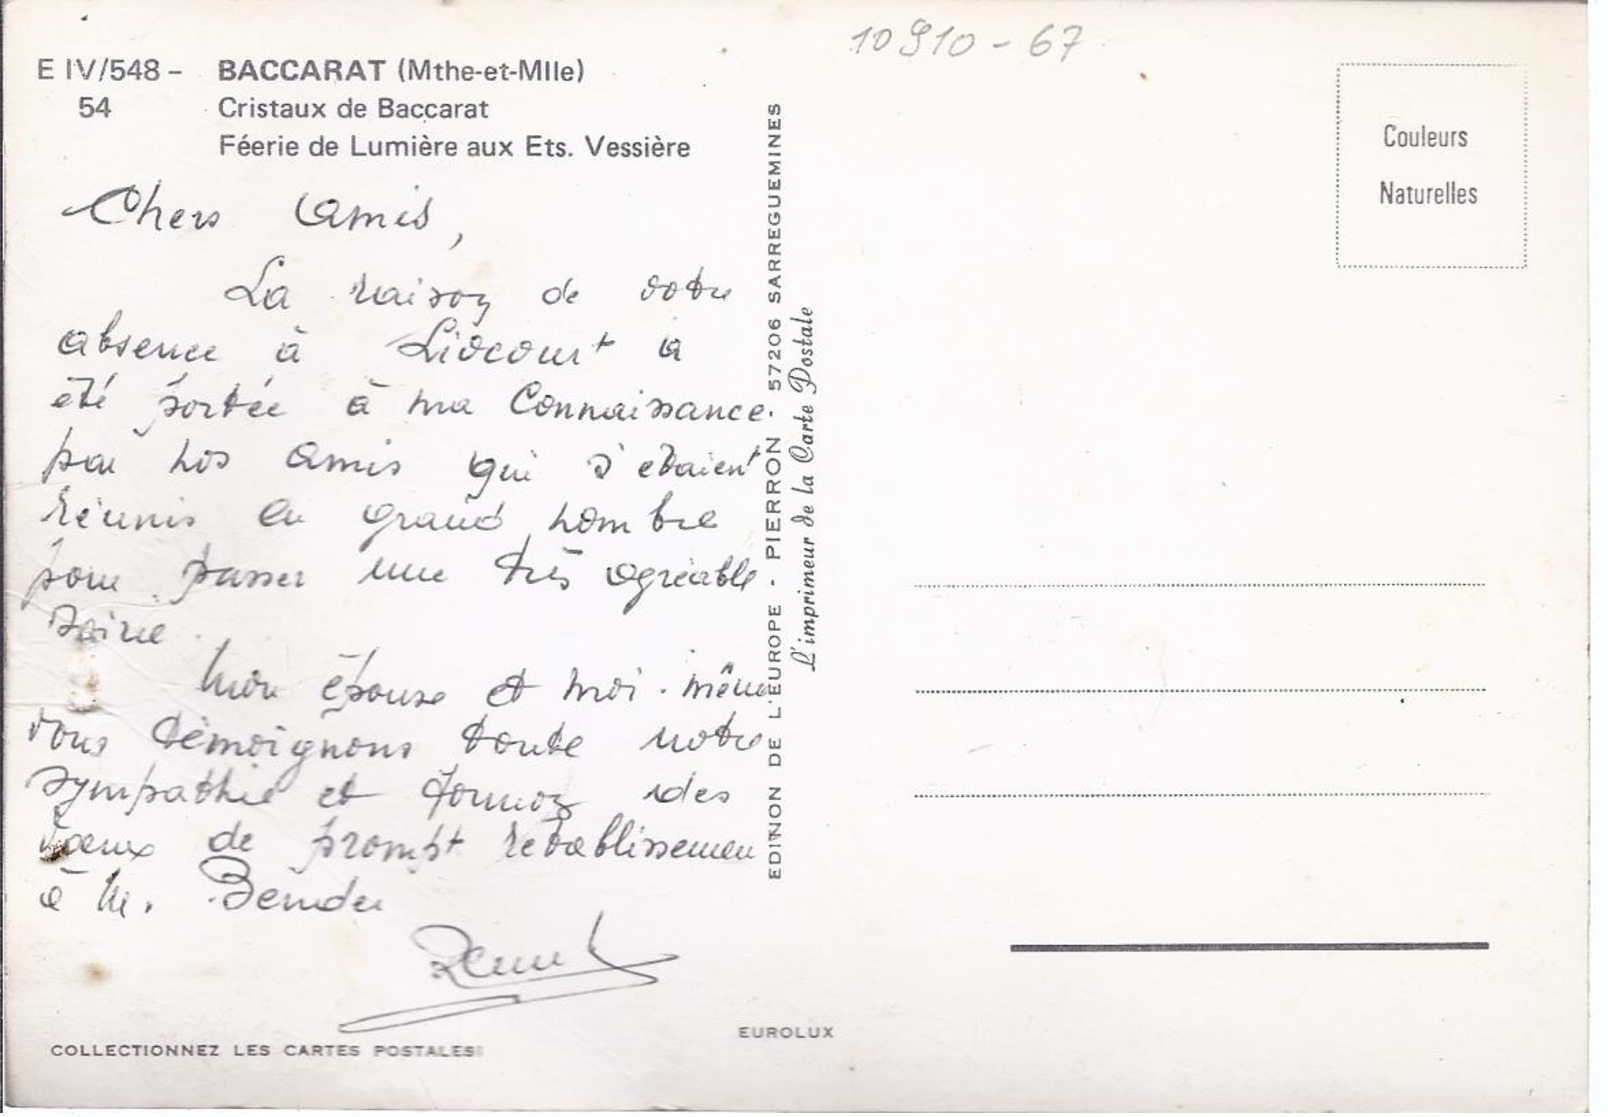 10910-67
E IV/548 - BACCARAT (Mthe-et-Mlle)
54 Cristaux de Baccarat
Féerie de Lumière aux Ets. Vessière
Couleurs
Naturelles
Chers Amis,
La raison de votre
absence à Liocourt a
été portée à ma Connaissance
par nos amis qui s'étaient
réunis en grand nombre
pour passer une très agréable
soirée.
Mon épouse et moi-même
vous témoignons toute notre
sympathie et formons des
voeux de prompt rétablissement
à M.
EDITION DE L'EUROPE - PIERRON - 57206 SARREGUEMINES
L'imprimeur de la Carte Postale
EUROLUX
COLLECTIONNEZ LES CARTES POSTALES